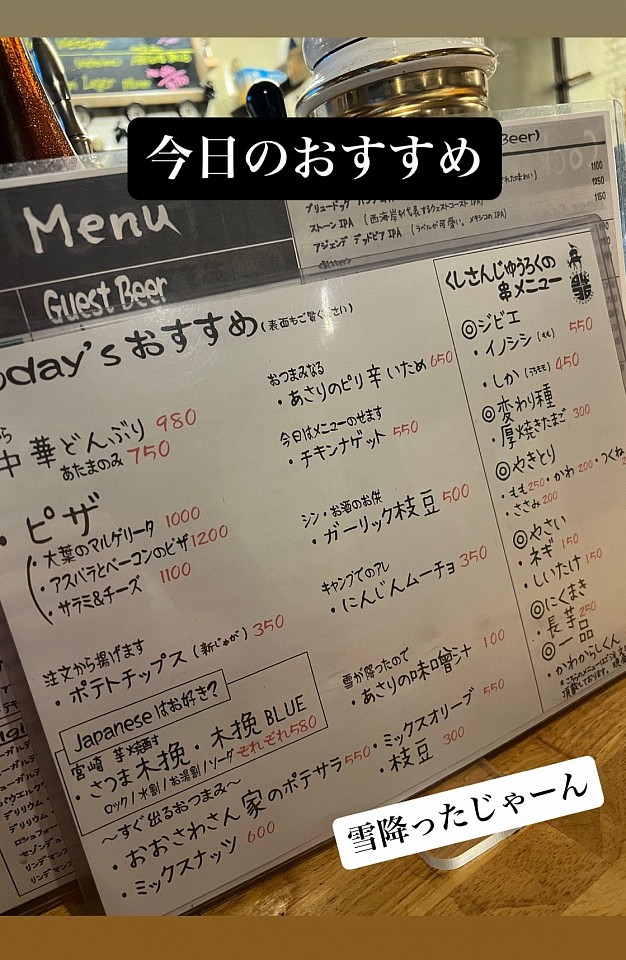 今日のおすすめ
Menu
Guest Beer
Beer)
1100
ストーン IPA (西海岸代表するウエストコースト IPA) 1250
アジェンデ デッドビア IPA (ラベルが可愛い。メキシコのIPA) 1150
oday'sおすすめ(表面もご覧ください)
中華どんぶり 980
あたまのみ 750
・ピザ
・大葉のマルゲリータ 1000
・アスパラとベーコンのピザ 1200
・サラミ&チーズ 1100
注文から揚げます
・ポテトチップス (新じゃが) 350
Japaneseはお好き?
宮崎 芋焼酎
・さつま木挽・木挽BLUE
ロック/水割/お湯割/ソーダ それぞれ580
〜すぐ出るおつまみ〜
・おおさわさん家のポテサラ 550
・ミックスナッツ 600
おつまみなる
・あさりのピリ辛いため 650
今日はメニューのせます
・チキンナゲット 550
シン・お酒のお供
・ガーリック枝豆 500
キャンプでのアレ
・にんじんムーチョ 350
雪が降ったので
・あさりの味噌汁 100
・ミックスオリーブ 550
・枝豆 300
くしさんじゅうろくの
串メニュー
◎ジビエ
・イノシシ (もも) 550
・しか (うちモモ) 450
◎変わり種
・厚焼きたまご 300
◎やきとり
・もも 250・かわ 200・つくね
・ささみ 200
◎やさい
・ネギ 150
・しいたけ 150
◎にくまき
・長芋 250
◎一品
・かわからしくん
雪降ったじゃーん